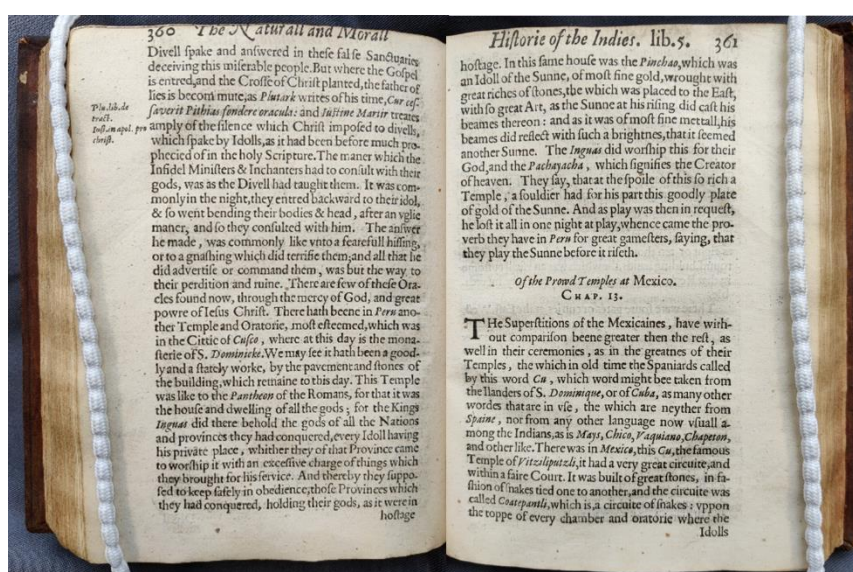 360 The Naturall and Morall
Divell spake and answered in these false Sanctuaries
deceiving this miserable people. But where the Gospel
is entred, and the Crosse of Christ planted, the father of
lies is becom mute, as Plutark writes of his time, Cur ces-
saverit Pithias fondere oracula: and Iustine Martir treates
amply of the silence which Christ imposed to divells,
which spake by Idolls, as it had been before much pro-
phecied of in the holy Scripture. The maner which the
Infidel Ministers & Inchanters had to consult with their
gods, was as the Divell had taught them. It was com-
monly in the night, they entred backward to their idol,
& so went bending their bodies & head, after an vglie
maner, and so they consulted with him. The answer
he made, was commonly like vnto a fearefull hissing,
or to a gnashing which did terrifie them; and all that he
did advertise or command them, was but the way to
their perdition and ruine. There are few of these Ora-
cles found now, through the mercy of God, and great
powre of Iesus Christ. There hath beene in Peru ano-
ther Temple and Oratorie, most esteemed, which was
in the Cittie of Cusco, where at this day is the mona-
sterie of S. Dominicke. We may see it hath been a good-
ly and a stately worke, by the pavement and stones of
the building, which remaine to this day. This Temple
was like to the Pantheon of the Romans, for that it was
the house and dwelling of all the gods; for the Kings
Inguas did there behold the gods of all the Nations
and provinces they had conquered, every Idoll having
his private place, whither they of that Province came
to worship it with an excessive charge of things which
they brought for his service. And thereby they suppo-
sed to keep safely in obedience, those Provinces which
they had conquered, holding their gods, as it were in
hostage
Plu. lib. de
tract.
Iust. in apol. pro
christ.
Historie of the Indies. lib. 5. 361
hostage. In this same house was the Pinchao, which was
an Idoll of the Sunne, of most fine gold, wrought with
great riches of stones, the which was placed to the East,
with so great Art, as the Sunne at his rising did cast his
beames thereon: and as it was of most fine mettall, his
beames did reflect with such a brightnes, that it seemed
another Sunne. The Inguas did worship this for their
God, and the Pachayacha, which signifies the Creator
of heaven. They say, that at the spoile of this so rich a
Temple, a souldier had for his part this goodly plate
of gold of the Sunne. And as play was then in request,
he lost it all in one night at play, whence came the pro-
verb they have in Peru for great gamesters, saying, that
they play the Sunne before it riseth.
Of the Prowd Temples at Mexico.
CHAP. 13.
THe Superstitions of the Mexicaines, have with-
out comparison beene greater then the rest, as
well in their ceremonies, as in the greatnes of their
Temples, the which in old time the Spaniards called
by this word Cu, which word might bee taken from
the Ilanders of S. Dominique, or of Cuba, as many other
wordes that are in vse, the which are neyther from
Spaine, nor from any other language now vsuall a-
mong the Indians, as is Mays, Chico, Vaquiano, Chapeton,
and other like. There was in Mexico, this Cu, the famous
Temple of Vitziliputzli, it had a very great circuite, and
within a faire Court. It was built of great stones, in fa-
shion of snakes tied one to another, and the circuite was
called Coatepantli, which is, a circuite of snakes: vppon
the toppe of every chamber and oratorie where the
Idolls